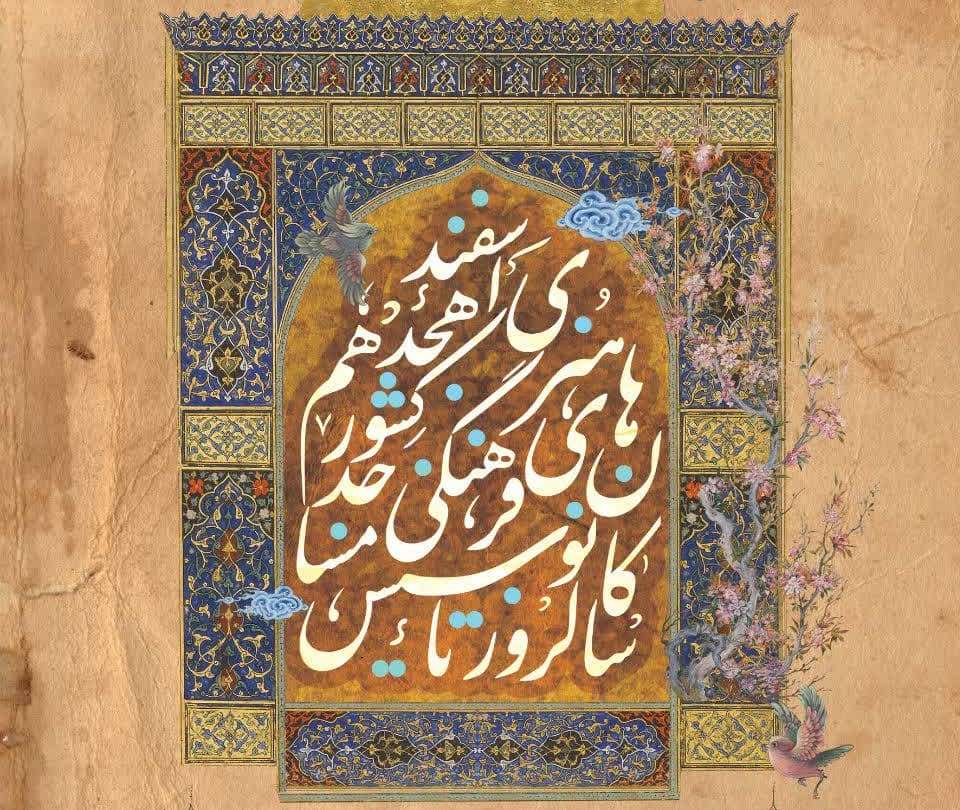 هجدهم اسفند
سالروز تأسیس
کانون های فرهنگی هنری
مساجد کشور